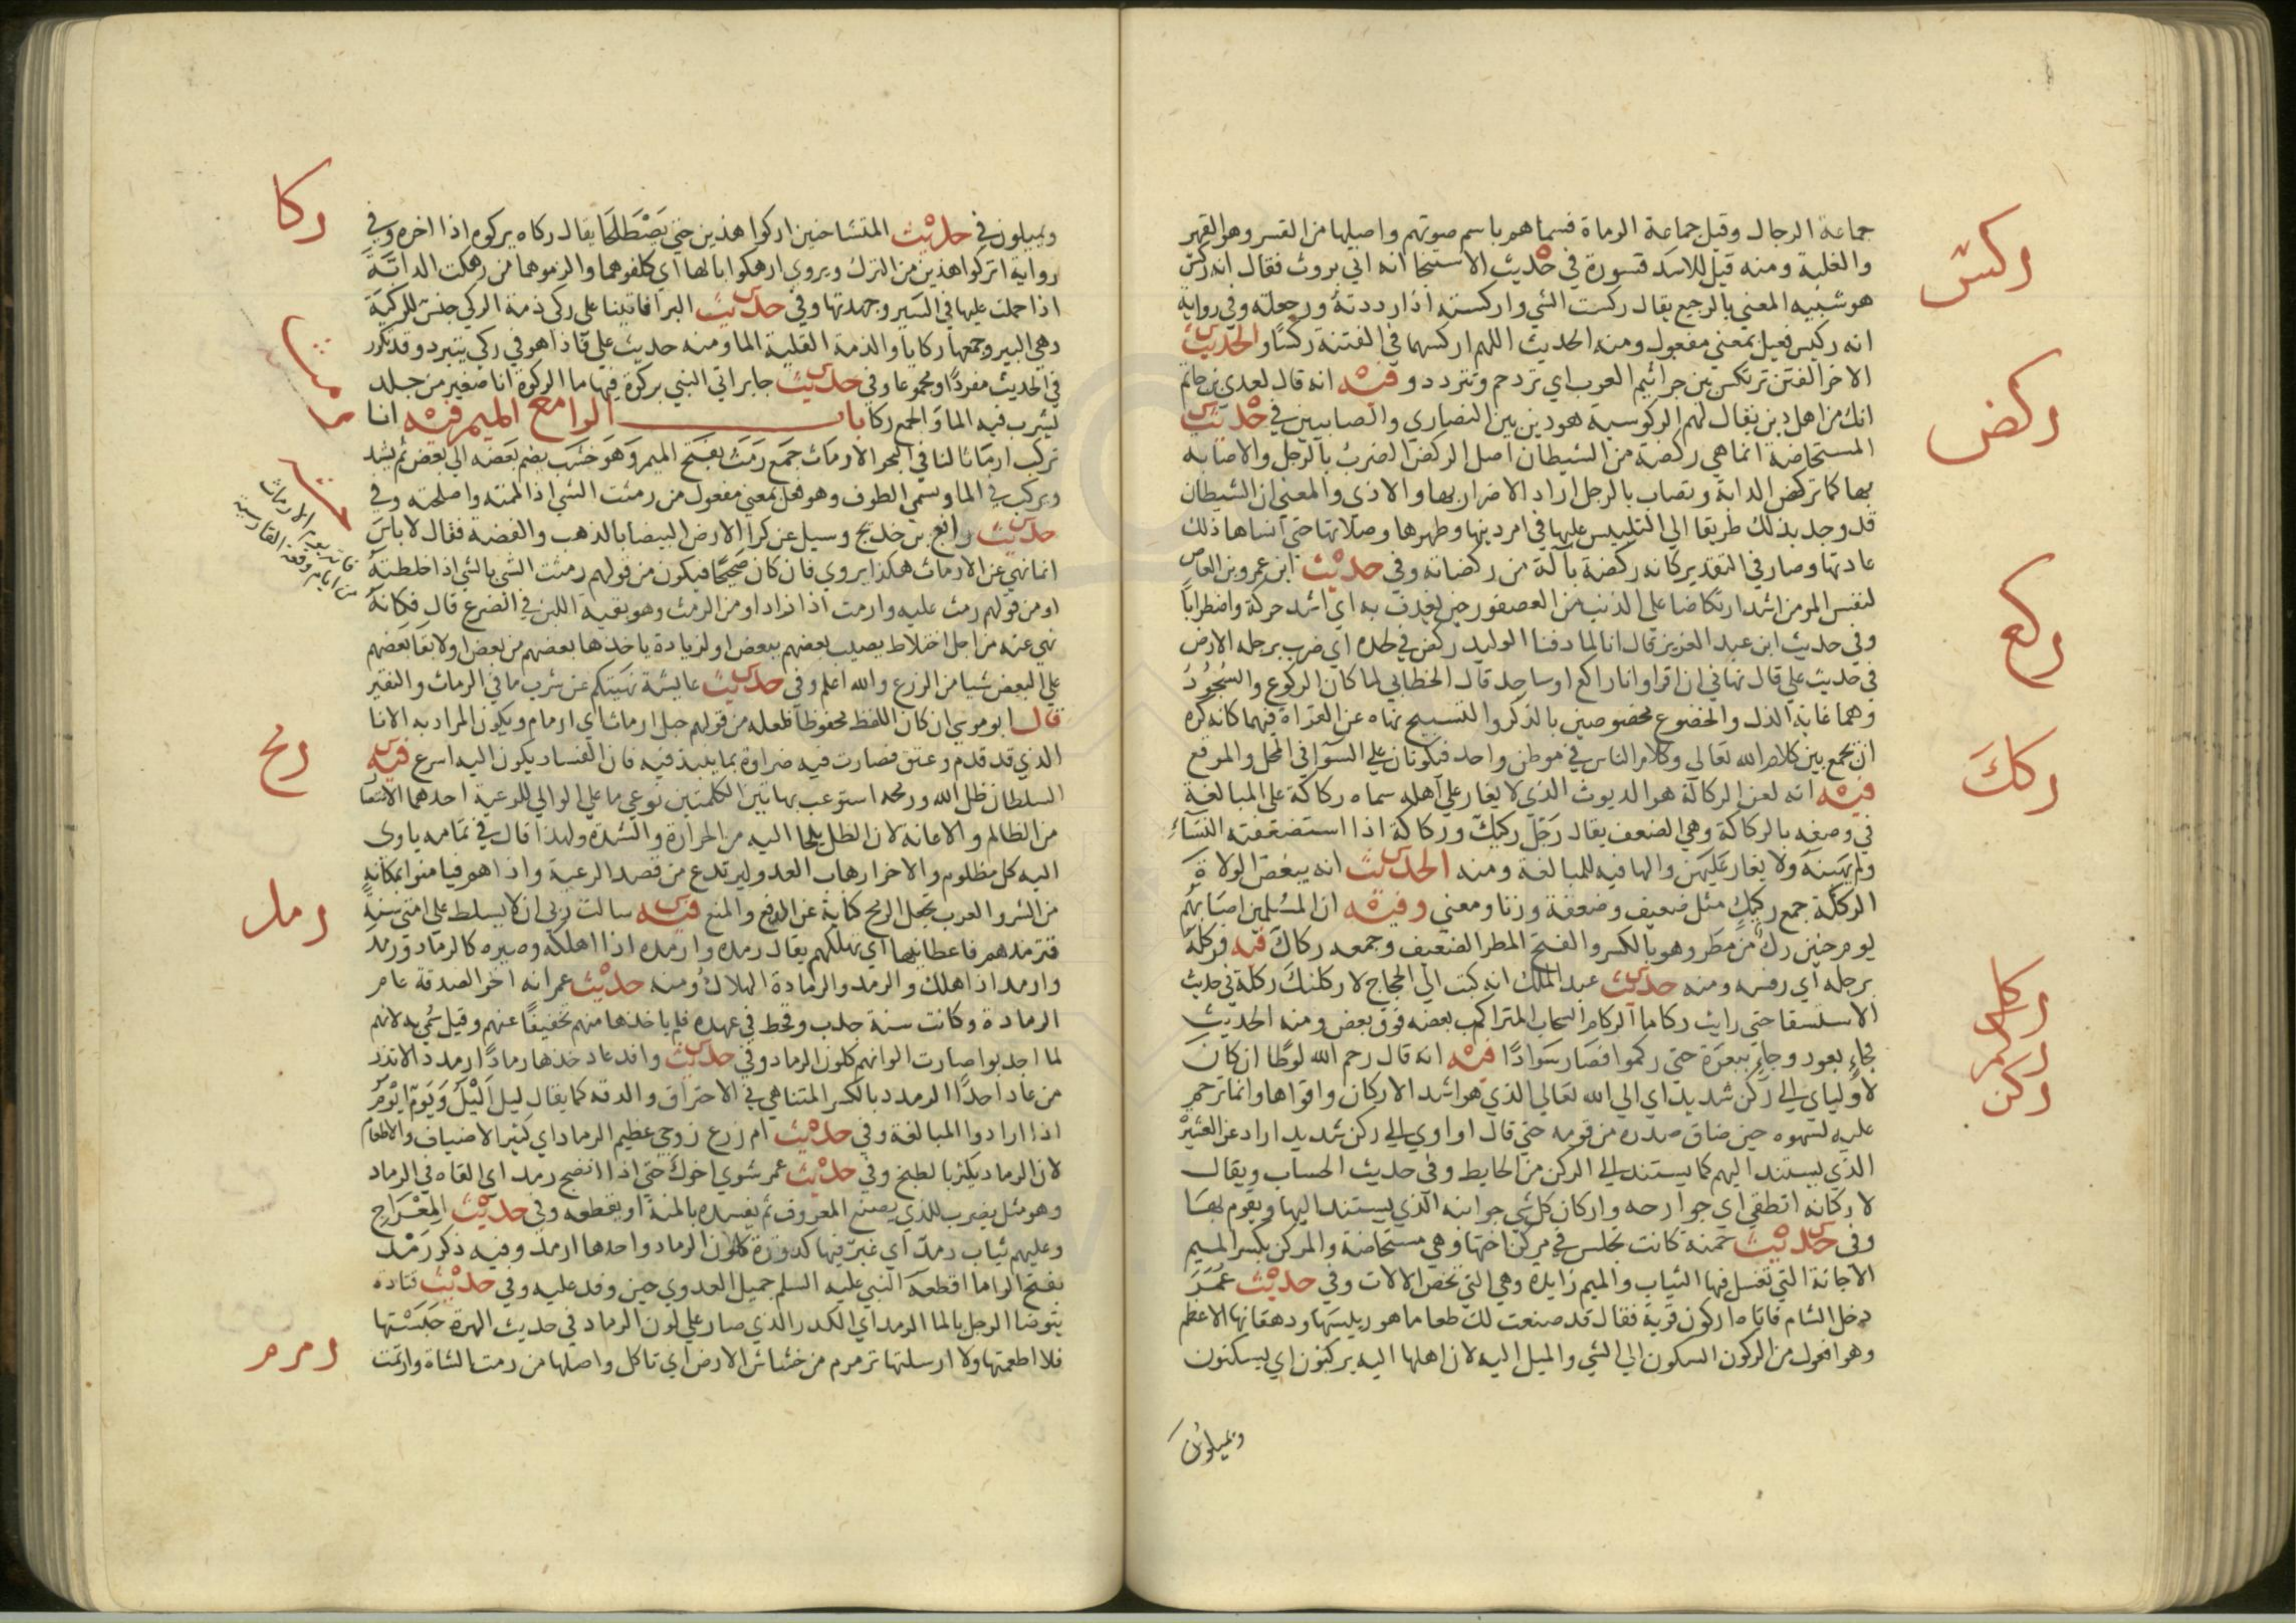 جماعة الرجال وقيل جماعة الرماة فسماهم باسم صوتهم واصلها من القسر وهو القهر
والغلبة ومنه قيل للاسد قسورة في حديث الاستنجا انه اتي بروث فقال انه ركس
ركس
هو شبيه المعني بالرجيع يقال ركست الشي واركسته اذا رددته ورجعته وفي رواية
انه ركيس فعيل بمعني مفعول ومنه الحديث اللهم اركسهما في الفتنة ركسا والحديث
الاخر الفتن ترتكس بين جراثيم العرب اي تزدحم وتتردد وفيه انه قال لعدي بن حاتم
انك من اهل دين يقال لهم الركوسية هو دين بين النصاري والصابيين في حديث
ركض
المستحاضة انما هي ركضة من الشيطان اصل الركض الضرب بالرجل والاصابة
بها كما تركض الدابة وتصاب بالرجل اراد الاضرار بها والاذي والمعني ان الشيطان
قد وجد بذلك طريقا الي التلبيس عليها في امر دينها وطهرها وصلاتها حتي انساها ذلك
عادتها وصار في التقدير كانه ركضة بآلة من ركضاته وفي حديث ابن عمرو بن العاص
لنفس المومن اشد ارتكاضا علي الذنب من العصفور حين يغدف به اي اشد حركة واضطرابا
وفي حديث ابن عبد العزيز قال انا لما دفنا الوليد ركض في لحده اي ضرب برجله الارض
ركع
في حديث علي قال نهاني ان اقرا وانا راكع او ساجد قال الخطابي لما كان الركوع والسجود
وهما غاية الذل والخضوع مخصوصين بالذكر والتسبيح نهاه عن القراة فيهما كانه كره
ان يجمع بين كلام الله تعالي وكلام الناس في موطن واحد فيكونان علي السوا في المحل والموقع
ركك
فيه انه لعن الركاكة هو الديوث الذي لا يغار علي اهله سماه ركاكة علي المبالغة
في وصفه بالركاكة وهي الضعف يقال رجل ركيك وركاكة اذا استضعفته النساء
ولم يهبنه ولا يغار عليهن والها فيه للمبالغة ومنه الحديث انه يبغض الولاة
الرككة جمع ركيك مثل ضعيف وضعفة وزنا ومعني وفيه ان المسلمين اصابهم
يوم حنين رك من مطر وهو بالكسر والفتح المطر الضعيف وجمعه ركاك فيه فركله
ركل
برجله اي رفسه ومنه حديث عبد الملك انه كتب الي الحجاج لاركلنك ركلة في حديث
ركم
الاستسقا حتي رايت ركاما الركام السحاب المتراكب بعضه فوق بعض ومنه الحديث
فجاء بعود وجاء ببعرة حتي ركموا فصار سوادا فيه انه قال رحم الله لوطا ان كان
ركن
لاوليا الي ركن شديد اي الي الله تعالي الذي هو اشد الاركان واقواها وانما ترحم
عليه لسهوه حين ضاق صدره من قومه حتي قال او اوي الي ركن شديد اراد عز العشيرة
الذي يستند اليهم كما يستند الي الركن من الحايط وفي حديث الحساب ويقال
لاركانه انطقي اي جوارحه واركان كل شي جوانبه الذي يستند اليها ويقوم بها
وفي حديث حمنة كانت تجلس في مركن اختها وهي مستحاضة والمركن بكسر الميم
الاجانة التي تغسل فيها الثياب والميم زايدة وهي التي تخص الالات وفي حديث عمر
دخل الشام فاتاه اركون قرية فقال قد صنعت لك طعاما هو رييسها ودهقانها الاعظم
وهو افعول من الركون السكون الي الشي والميل اليه لان اهلها اليه يركنون اي يسكنون
ويميلون
ركا
ويميلون في حديث المتشاحنين اركوا هذين حتي يصطلحا يقال ركاه يركوه اذا اخره وفي
رواية اتركوا هذين من الترك ويروي ارهكوا بالها اي كلفوهما والزموهما من رهكت الدابة
اذا حملت عليها في السير وجهدتها وفي حديث البرا فاتينا علي ركي ذمة الركي جنس للركية
وهي البير وجمعها ركايا والذمة القليلة الما ومنه حديث علي فاذا هو في ركي يتبرد وقد تكرر
في الحديث مفردا ومجموعا وفي حديث جابر اتي النبي بركوة فيها ما الركوة انا صغير من جلد
يشرب فيه الما والجمع ركا باب الرا مع الميم فيه انا
رمث
نركب ارماثا لنا في البحر الارماث جمع رمث بفتح الميم وهو خشب يضم بعضه الي بعض ثم يشد
ويركب في الما ويسمي الطوف وهو فعل بمعني مفعول من رمثت الشي اذا لممته واصلحته وفي
حديث رافع بن خديج وسيل عن كرا الارض البيضا بالذهب والفضة فقال لا باس
انما نهي عن الارماث هكذا يروي فان كان صحيحا فيكون من قولهم رمثت الشي بالشي اذا خلطته
او من قولهم رمث عليه وارمث اذا زاد او من الرمث وهو بقية اللبن في الضرع قال فكانه
نهي عنه من اجل اختلاط نصيب بعضهم ببعض او لزيادة ياخذها بعضهم من بعض او لابقا بعضهم
علي البعض شيا من الزرع والله اعلم وفي حديث عايشة نهيتكم عن شرب ما في الرماث والنقير
قال ابو موسي ان كان اللفظ محفوظا فلعله من قولهم حبل ارماث اي ارمام ويكون المراد به الانا
رمح
الذي قد قدم وعتق فصارت فيه ضراوة بما ينبذ فيه فان الفساد يكون اليه اسرع فيه
السلطان ظل الله ورمحه استوعب بهاتين الكلمتين نوعي ما علي الوالي للرعية احدهما الانتصا
من الظالم والاعانة لان الظل يلجا اليه من الحرارة والشدة ولهذا قال في تمامه ياوي
اليه كل مظلوم والاخر ارهاب العدو ليرتدع من قصد الرعية واذاهم فيامنوا بمكانه
رمد
من الشر والعرب تجعل الرمح كناية عن الدفع والمنع فيه سالت ربي ان لا يسلط علي امتي سنة
فترمدهم فاعطانيها اي تهلكهم يقال رمده وارمده اذا اهلكه وصيره كالرماد ورمد
وارمد اذا هلك والرمد والرمادة الهلاك ومنه حديث عمر انه اخر الصدقة عام
الرمادة وكانت سنة جدب وقحط في عهده فلم ياخذها منهم تخفيفا عنهم وقيل سمي به لانهم
لما اجدبوا صارت الوانهم كلون الرماد وفي حديث وافد عاد خذها رمادا رمددا لا تذر
من عاد احدا الرمدد بالكسر المتناهي في الاحتراق والدقة كما يقال ليل اليل ويوم ايوم
اذا ارادوا المبالغة وفي حديث ام زرع زوجي عظيم الرماد اي كثير الاضياف والاطعام
لان الرماد يكثر بالطبخ وفي حديث عمر شوي اخوك حتي اذا انضج رمد اي القاه في الرماد
وهو مثل يضرب للذي يصنع المعروف ثم يفسده بالمنة او يقطعه وفي حديث المعراج
وعليهم ثياب رمد اي غبر فيها كدورة كلون الرماد واحدها ارمد وفيه ذكر رمد
بفتح الرا ما اقطعه النبي عليه السلم جميل العدوي حين وفد عليه وفي حديث قتادة
يتوضا الرجل بالما الرمد اي الكدر الذي صار علي لون الرماد في حديث الهرة حبستها
رمرم
فلا اطعمتها ولا ارسلتها ترمرم من خشاش الارض اي تاكل واصلها من رمت الشاة وارتمت